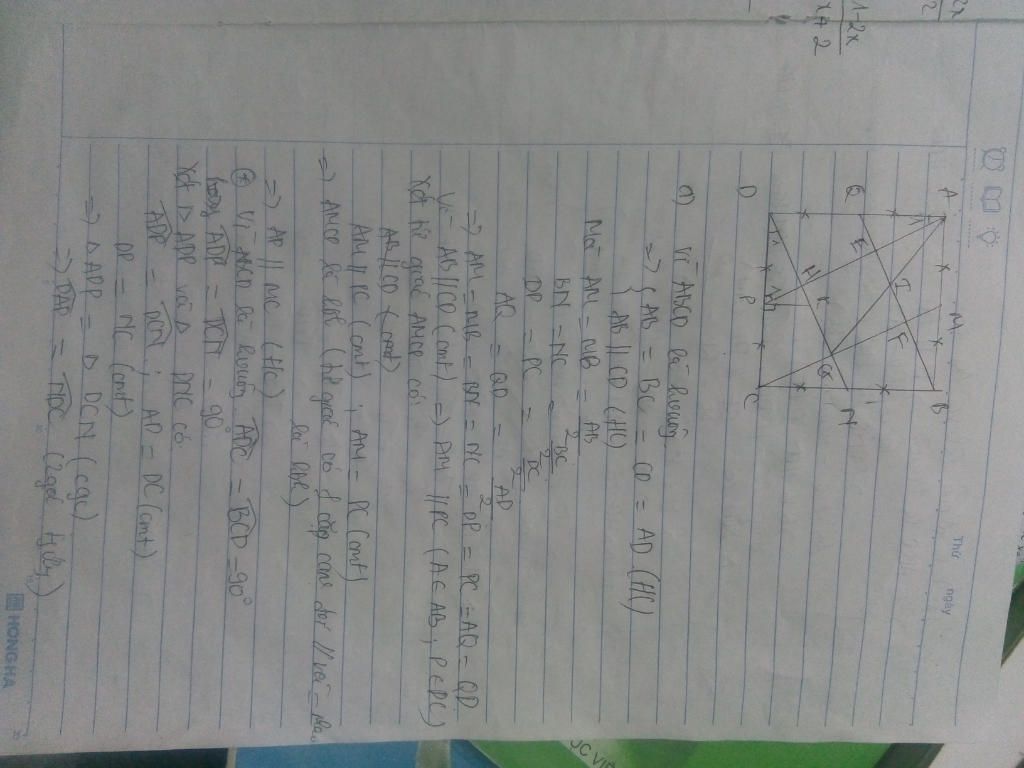 Thứ ngày
1-2x
x+2
A M B
Q E I F
H K G N
D P C
a) Vì ABCD là hvuông
=> { AB = BC = CD = AD (t/c)
AB // CD (t/c)
Mà AM = MB = AB/2
BN = NC = BC/2
DP = PC = DC/2
AQ = QD = AD/2
=> AM = MB = BN = NC = DP = PC = AQ = QD
Vì AB // CD (cmt) => AM // PC (M ∈ AB, P ∈ DC)
Xét tứ giác AMCP có
AB // CD (cmt)
AM // PC (cmt) ; AM = PC (cmt)
=> AMCP là hbh (tứ giác có 1 cặp cạnh đối // và =
là hbh)
=> AP // MC (t/c)
* Vì ABCD là hvuông ADC = BCD = 90°
hay ADP = DCN = 90°
Xét Δ ADP và Δ DNC có
ADP = DCN ; AD = DC (cmt)
DP = NC (cmt)
=> Δ ADP = Δ DCN (cgc)
=> DAP = NDC (2 góc t/ứng)
HONG HA